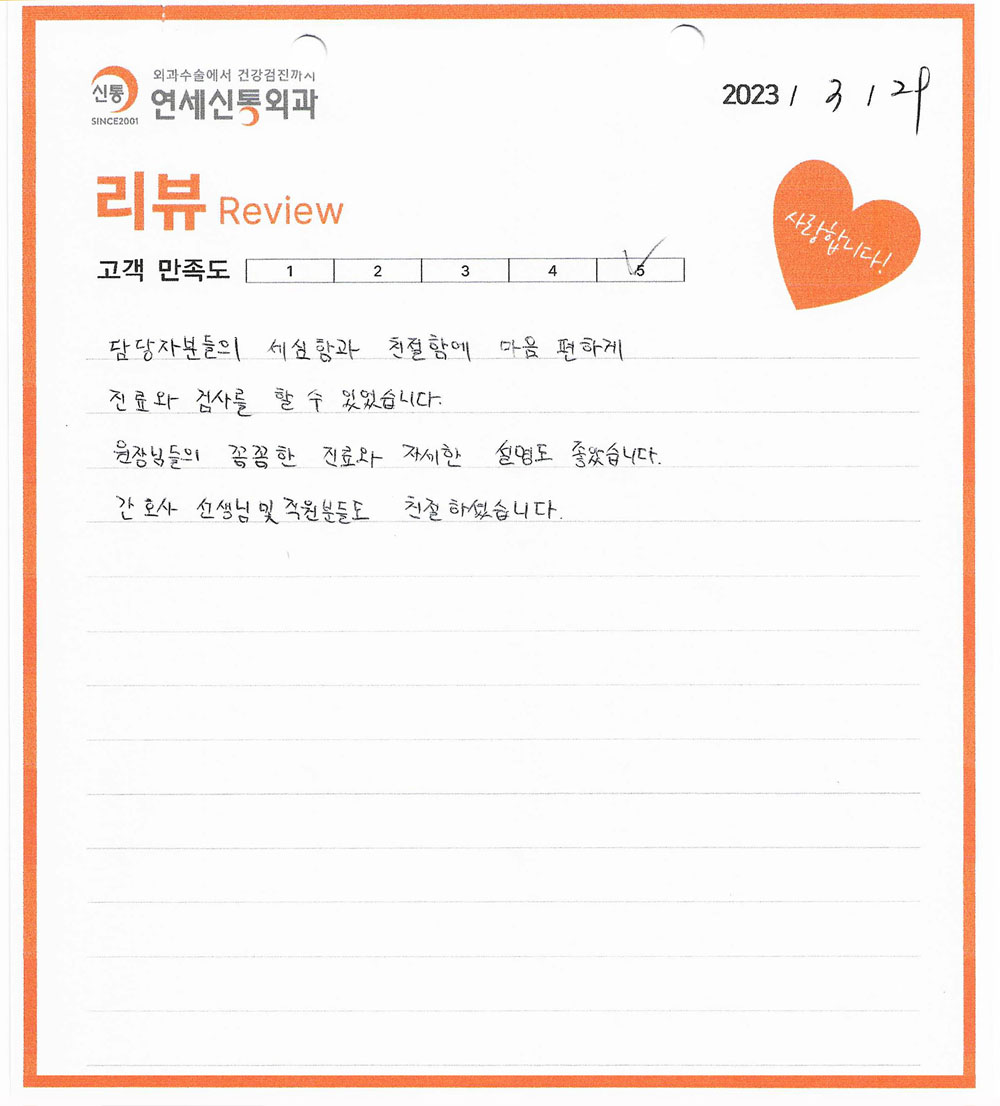 신통
SINCE2001
외과수술에서 건강검진까지
연세신통외과
2023 / 3 / 29
리뷰 Review
사랑합니다!
고객 만족도 1 2 3 4 5
담당자분들의 세심함과 친절함에 마음 편하게
진료와 검사를 할 수 있었습니다.
원장님들의 꼼꼼한 진료와 자세한 설명도 좋았습니다.
간호사 선생님 및 직원분들도 친절하셨습니다.